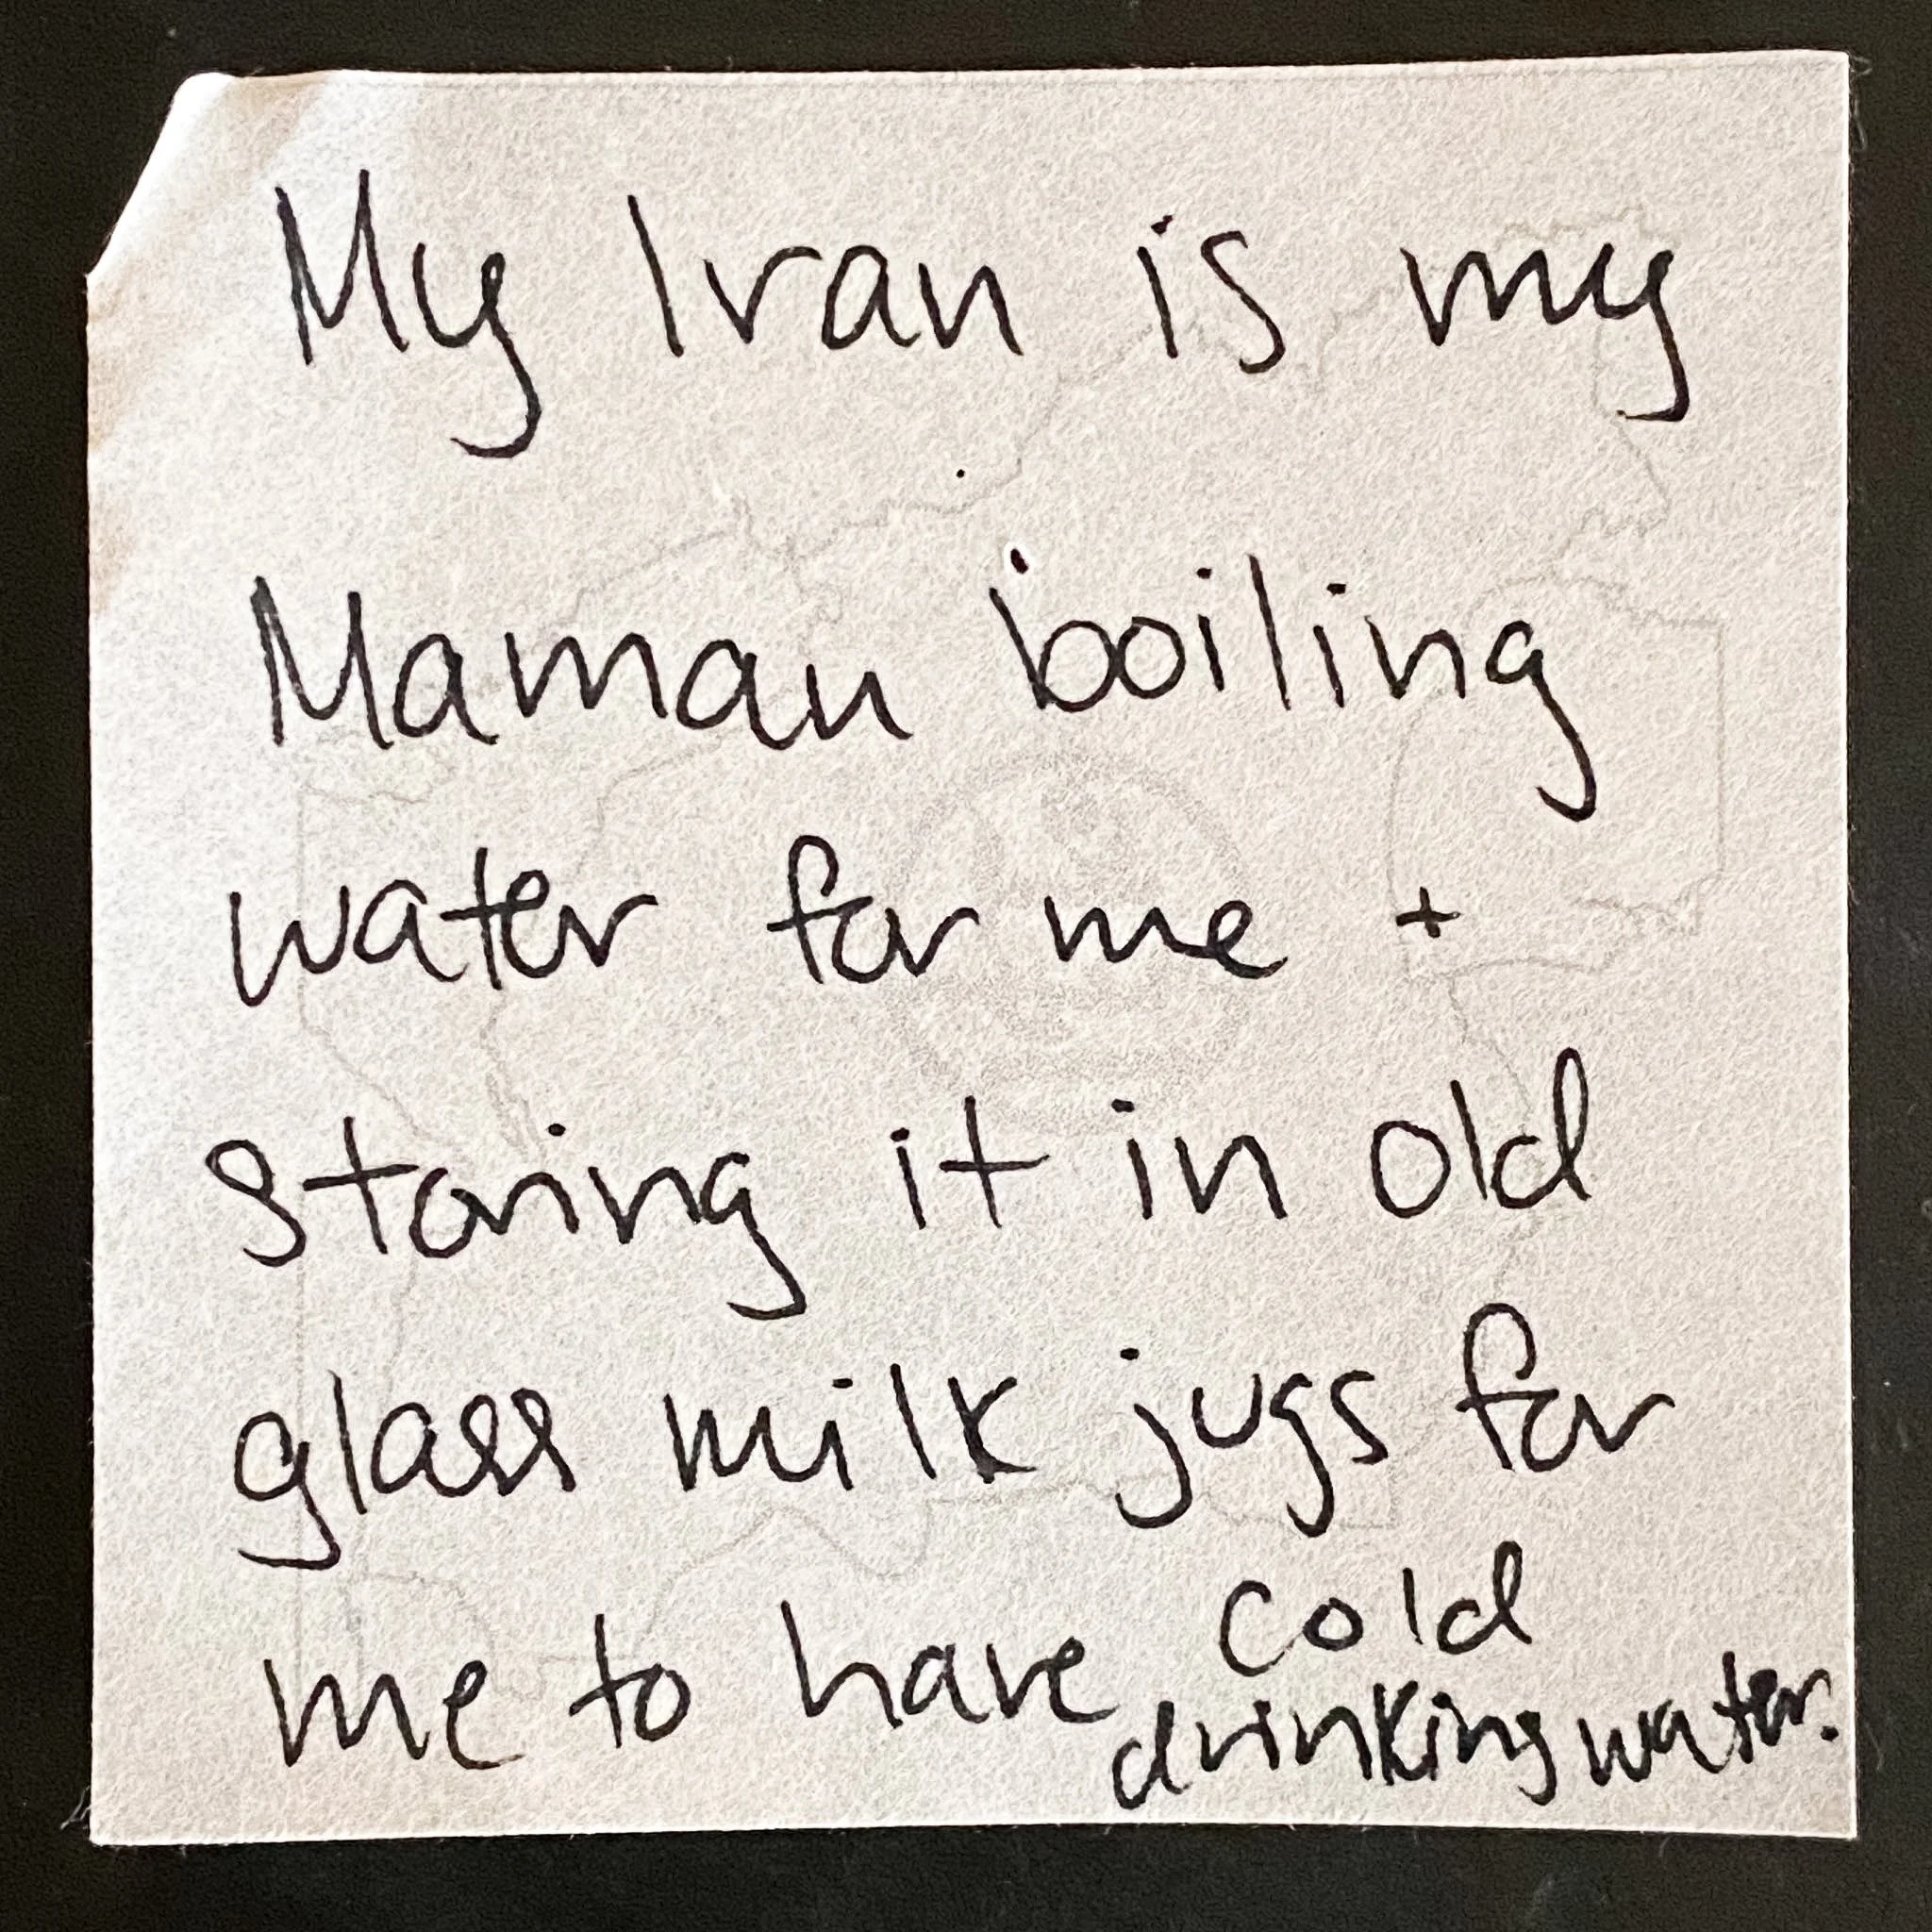 My Iran is my
Maman boiling
water for me +
storing it in old
glass milk jugs for
me to have cold
drinking water.